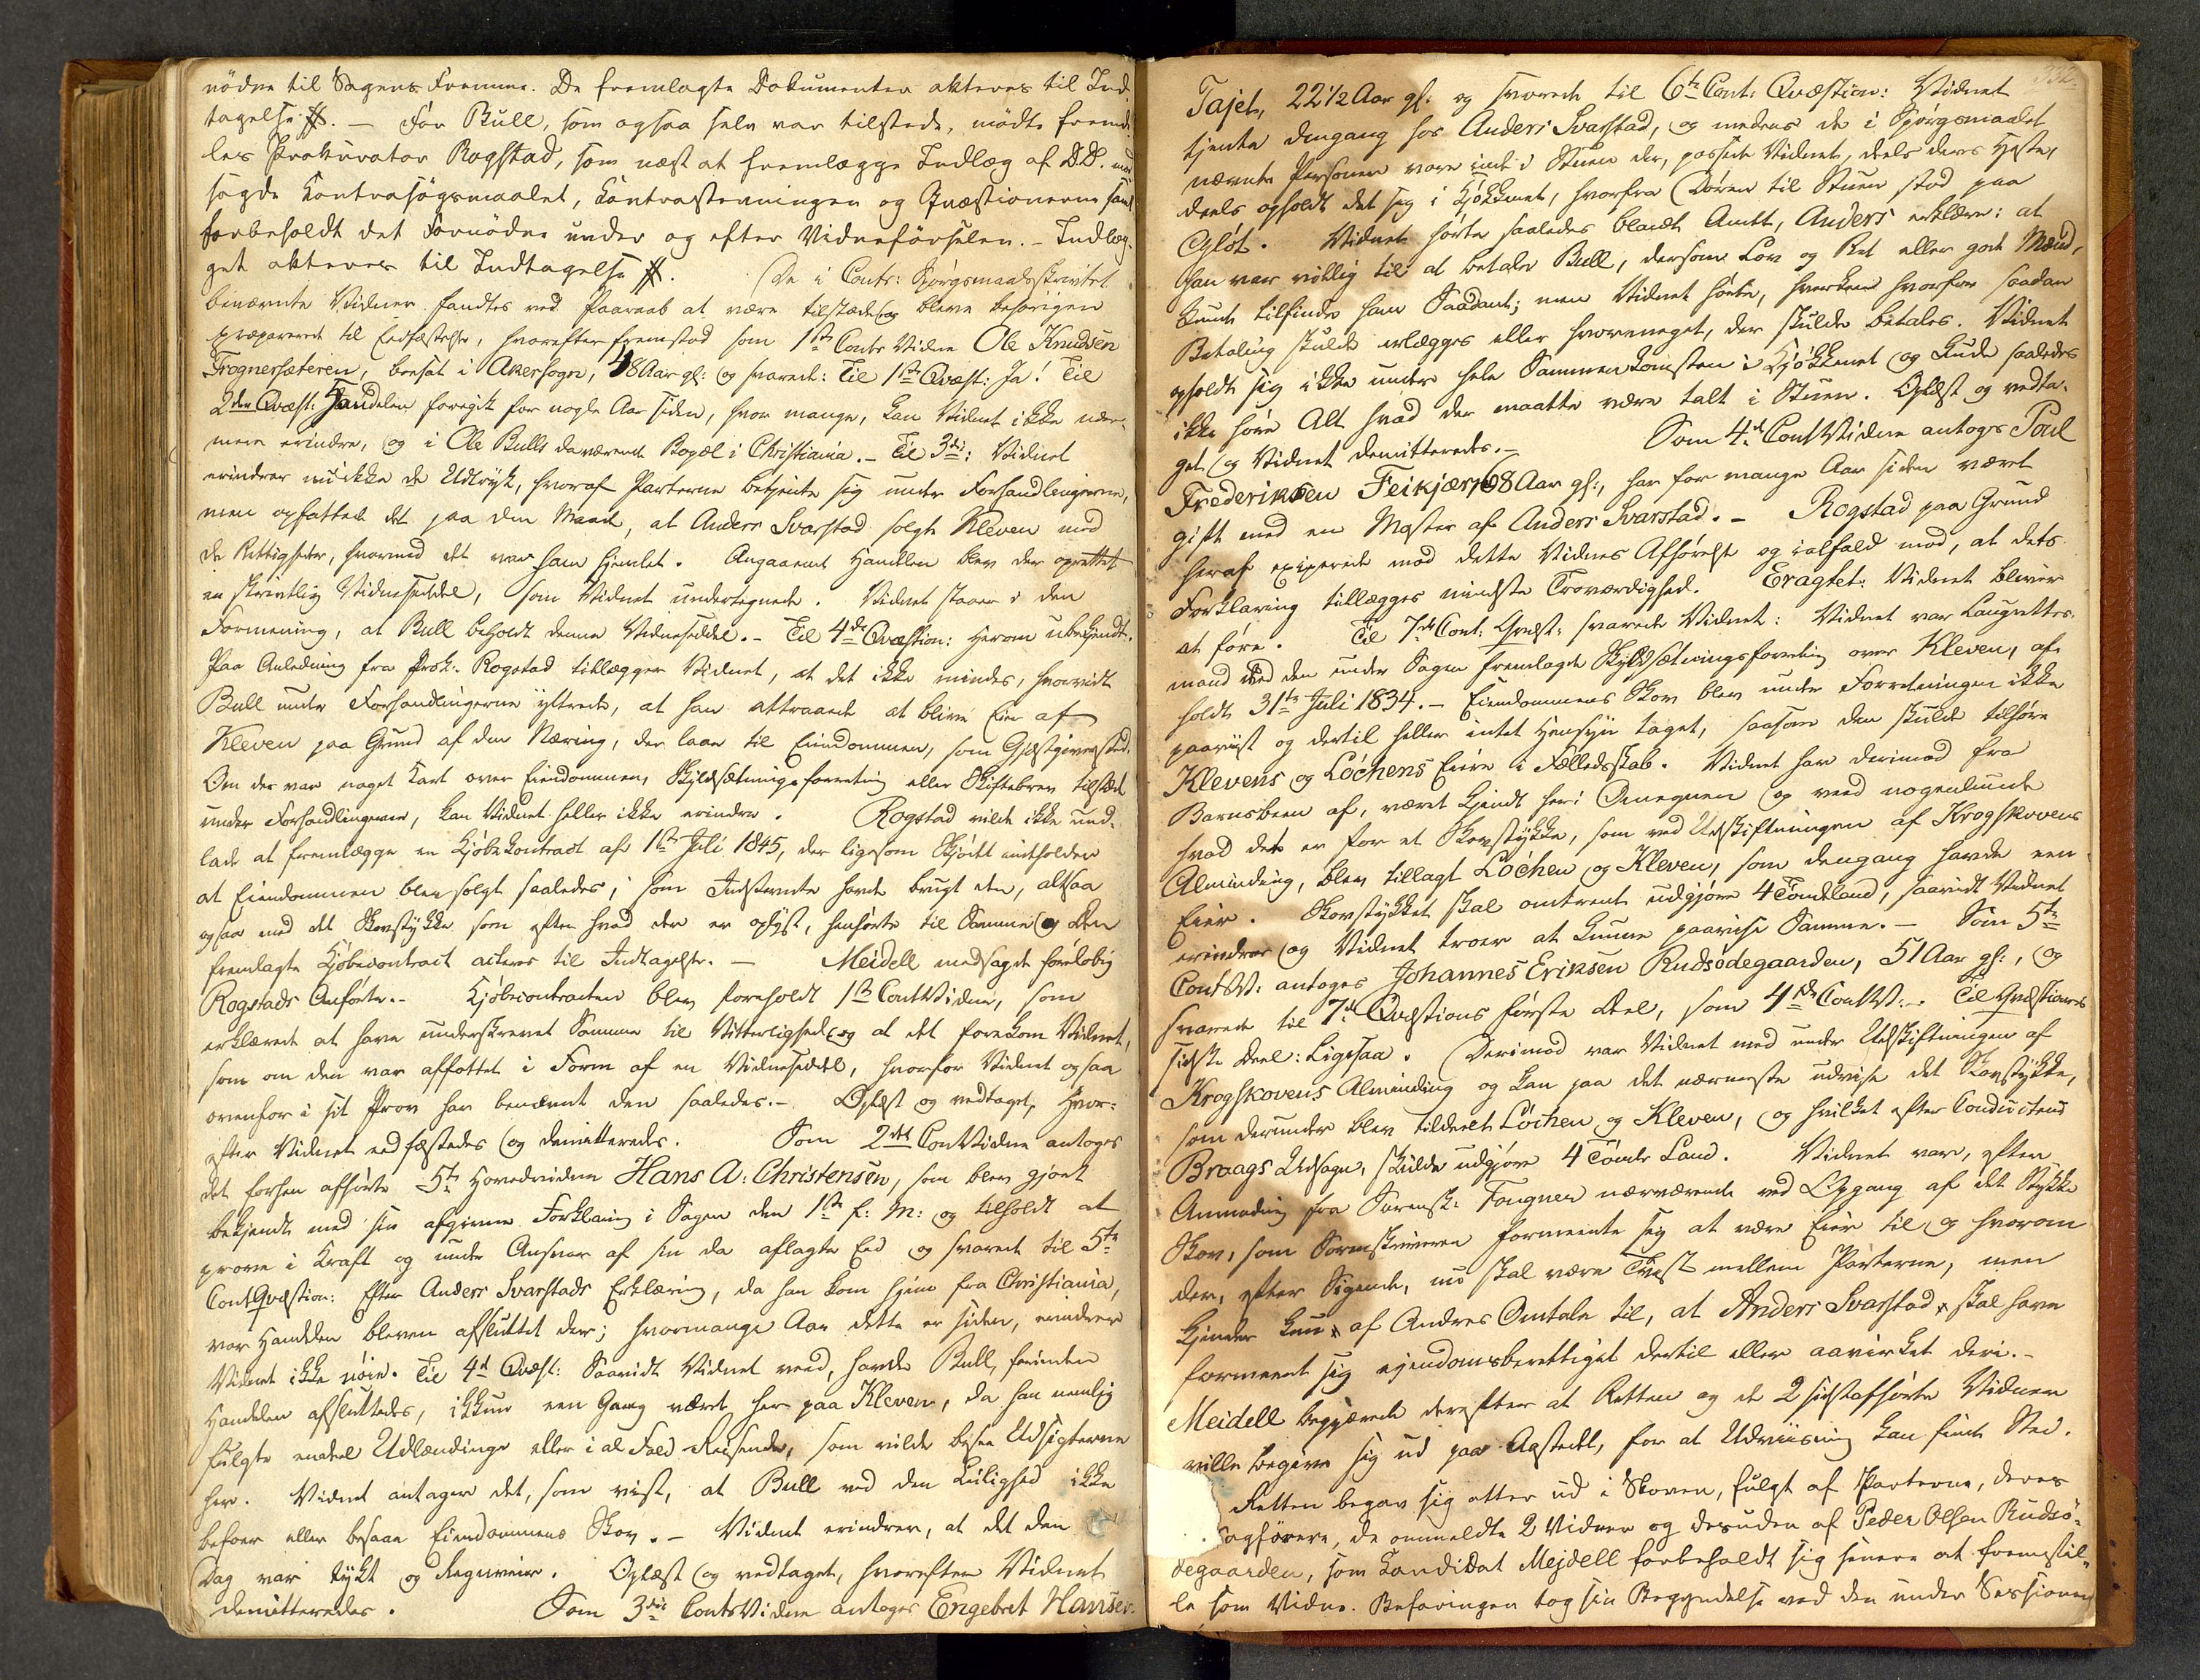 nödne til Sagens Fremme. De fremlagte Dokumenter akteres til Ind-
tagelse #. — For Bull, som ogsaa selv var tilstede, mödte fremde-
les Prokurator Rogstad, som næst at fremlægge Indlæg af D.D. mod-
sagde Kontrasögsmaalet, Contrastevningen og Qvæstionerne samt
forbeholdt det Fornödne under og efter Vidneförselen. — Indlæg-
get akteres til Indtagelse #. De i Contr: Spörgsmaalsskriftet
benævnte Vidner fandtes ved Paaraab at være tilstede og bleve behörigen
præparerede til Eedfæstelse, hvorefter fremstod som 1ste Contr Vidne Ole Knudsen
Frognersæteren, boesat i Akersogn, 48 Aar gl: og svarede: Til 1ste Qvæst: Ja! Til
2den Qvæst: Handelen foregik for nogle Aar siden, hvor mange, kan Vidnet ikke nær-
mere erindre, og i Ole Bulls daværende Bopæl i Christiania. — Til 3die: Vidnet
erindrer nu ikke de Udtryk, hvoraf Parterne betjente sig under Forhandlingerne,
men opfattede det paa den Maade, at Anders Svarstad solgte Kleven med
de Rettigheder, hvormed det var ham hjemlet. Angaaende Handelen blev der oprettet
en skrivtlig Vidneseddel, som Vidnet undertegnede. Vidnet staaer i den
Formening, at Bull beholdt denne Vidneseddel. — Til 4de Qvæstion: Herom ubekjendt.
Paa Anledning fra Prok. Rogstad tillægger Vidnet, at det ikke mindes, hvorvidt
Bull under Forhandlingerne yttrede, at han attraaede at blive Eier af
Kleven paa Grund af den Næring, der laae til Eiendommen, som Gjæstgiversted.
Om der var noget Kart over Eiendommen, Skyldsætningsforretning eller Skiftebrev tilstæde
under Forhandlingerne, kan Vidnet heller ikke erindre. Rogstad vilde ikke und-
lade at fremlægge en Kjöbekontract af 1ste Juli 1845, der ligesom Skjödet indholder
at Eiendommen blev solgt saaledes, som Indstevnte havde brugt den, altsaa
ogsaa med det Skovstykke som efter hvad der er oplyst, henhörte til Samme og Den
fremlagte Kjöbecontract acteres til Indtagelse. — Meidell modsagde forelöbig
Rogstads Anförte. — Kjöbecontracten blev foreholdt 1ste ContVidne, som
erklærede at have underskrevet Samme til Vitterlighed og at det forekom Vidnet,
som om den var affattet i Form af en Vidneseddel, hvorfor Vidnet ogsaa
ovenfor i sit Prov har benævnt den saaledes. — Oplæst og vedtaget, hvor-
efter Vidnet eedfæstedes og demitteredes. Som 2det ContVidne antoges
det forhen afhörte 5te Hovedvidne Hans A: Christensen, som blev gjort
bekjendt med sin afgivne Forklaring i Sagen den 1ste f: M: og tilholdt at
prove i Kraft og under Ansvar af sin da aflagte Eed og svarede til 5te
ContQvæstion: Efter Anders Svarstads Erklæring, da han kom hjem fra Christiania,
var Handelen bleven afsluttet der; hvormange Aar dette er siden, erindrer
Vidnet ikke nöie. Til 4de Qvæst: Saavidt Vidnet veed, havde Bull, forinden
Handelen afsluttedes, ikkun een Gang været her paa Kleven, da han nemlig
fulgte endeel Udlændinge eller i al Fald Reisende, som vilde besee Udsigterne
her. Vidnet antager det, som vist, at Bull ved den Leilighed ikke
befoer eller besaae Eiendommens Skov. — Vidnet erindrer, at det den
Dag var tykt og Regnveir. Oplæst og vedtaget, hvorefter Vidnet
demitteredes. Som 3die ContrVidne antoges Engebret Hansen
Tajet, 22 1/2 Aar gl: og svarede til 6te Cont: Qvæstion: Vidnet
tjente dengang hos Anders Svarstad, og medens de i Spörgsmaalet
nævnte Personer vare inde i Stuen der, passede Vidnet, deels deres Heste,
deels opholdt det sig i Kjökkenet, hvorfra Dören til Stuen stod paa
Glöt. Vidnet hörte saaledes blandt Andet, Anders erklære: at
han var villig til at betale Bull, dersom Lov og Ret eller gode Mænd,
kunde tilfinde ham Saadant; men Vidnet hörte, hverken hvorfor saadan
Betaling skulde erlægges eller hvormeget, der skulde betales. Vidnet
opholdt sig ikke under hele Sammenkomsten i Kjökkenet og kunde saaledes
ikke höre Alt hvad der maatte være talt i Stuen. Oplæst og vedta-
get og Vidnet demitteredes. — Som 4de ContVidne antoges Poul
Frederiksen Feikjær, 68 Aar gl:, har for mange Aar siden været
gift med en Moster af Anders Svarstad. — Rogstad paa Grund
heraf exiperede mod dette Vidnes Afhörelse og ialfald mod, at dets
Forklaring tillægges mindste Troværdighed. Eragtet: Vidnet bliver
at före. Til 7de Cont: Qvæst: svarede Vidnet: Vidnet var Laugrettes-
mand ved den under Sagen fremlagte Skyldsætningsforretning over Kleven, af-
holdt 31te Juli 1834. — Eiendommens Skov blev under Forretningen ikke
paaviist og dertil heller intet Hensyn taget, saasom den skulde tilhöre
Klevens og Löchens Eiere i Fælledsskab. Vidnet har derimod fra
Barnsbeen af, været kjendt her i Omegnen og veed nogenlunde
hvad det er for et Skovstykke, som ved Udskiftningen af Krogskovens
Alminding, blev tillagt Löchen og Kleven, som dengang havde een
Eier. Skovstykket skal omtrent udgjöre 4 Töndeland, saavidt Vidnet
erindrer og Vidnet troer at kunne paavise Samme. — Som 5te
ContV: antoges Johannes Eriksen Rudsödegaarden, 51 Aar gl:, og
svarede til 7de Qvæstions förste Deel, som 4de ContV:. Til Qvæstionens
sidste Deel: Ligesaa. Derimod var Vidnet med under Udskiftningen af
Krogskovens Alminding og kan paa det nærmeste udvise det Skovstykke,
som derunder blev tildeelt Löchen og Kleven, og hvilket efter Conducteur
Braags Udsagn, skulde udgjöre 4 Tönde Land. Vidnet var, efter
Anmodning fra Sorensk: Fougner nærværende ved Opgang af det Stykke
Skov, som Sorenskriveren formeente sig at være Eier til og hvorom
der, efter Sigende, nu skal være Tvist mellem Parterne, men
kjender kun af Andres Omtale til, at Anders Svarstad skal have
formeent sig ejendomsberettiget dertil eller aavirket deri. —
Meidell begjærede derefter at Retten og de 2 sidstafhörte Vidner
ville begive sig ud paa Aastedet, for at Udviisning kan finde Sted.
Retten begav sig atter ud i Skoven, fulgt af Parterne, deres
Sagförere, de ommeldte 2 Vidner og desuden af Peder Olsen Rudsö-
degaarden, som Kandidat Mejdell forbeholdt sig senere at fremstil-
le som Vidne. Befaringen tog sin Begyndelse ved den under Sessionen